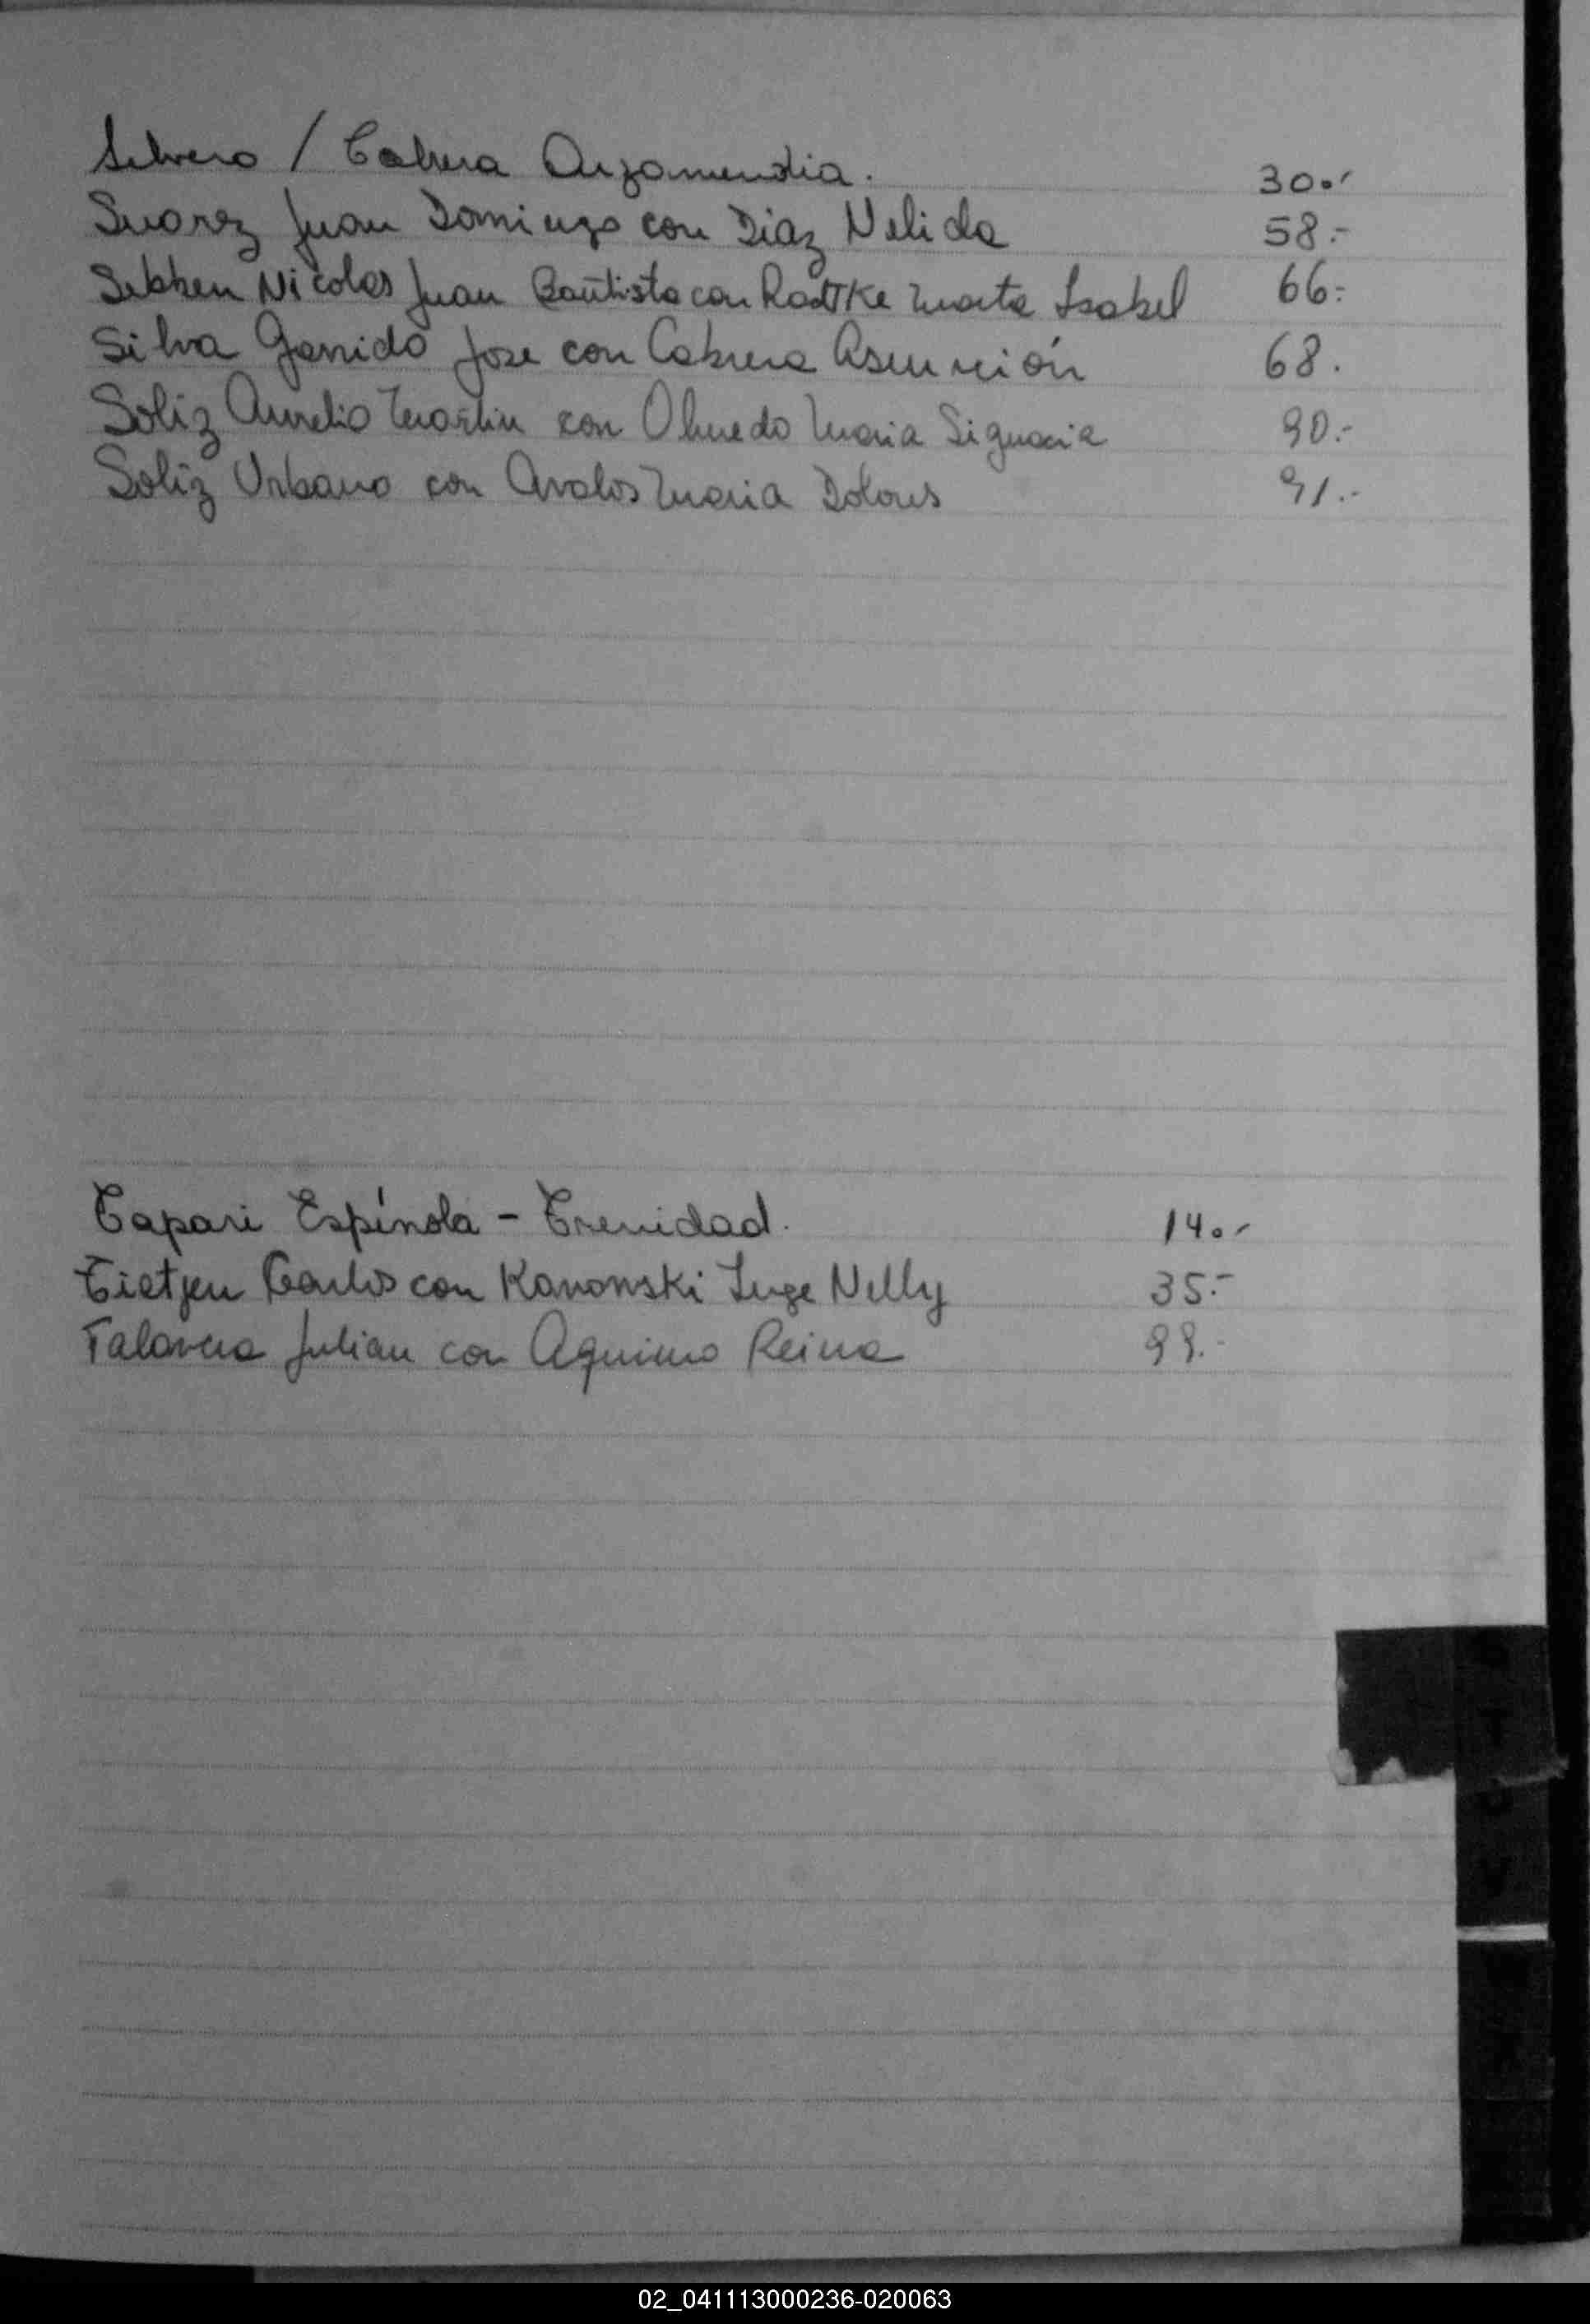 Silvero / Cabrera Arzamendia. 30.-
Suarez Juan Domingo con Diaz Nelida 58.-
Sebben Nicolas Juan Bautista con Radtke Marta Isabel 66.-
Silva Garrido Jose con Cabrera Asunción 68.
Soliz Aurelio Martin con Olmedo Maria 90.-
Soliz Urbano con Avalos Maria Dolores 91.-
Tapari Espínola - Trenidad. 14.-
Tietjen Carlos con Kanonski Inge Nelly 35.-
Talavera Julian con Aquino Reina 99.-
S
T
U
V
02_041113000236-020063